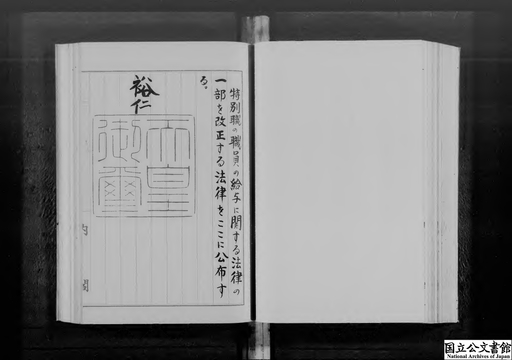 特別職の職員の給与に関する法律の
一部を改正する法律をここに公布す
る。
裕仁
天皇
御璽
内閣
国立公文書館
National Archives of Japan